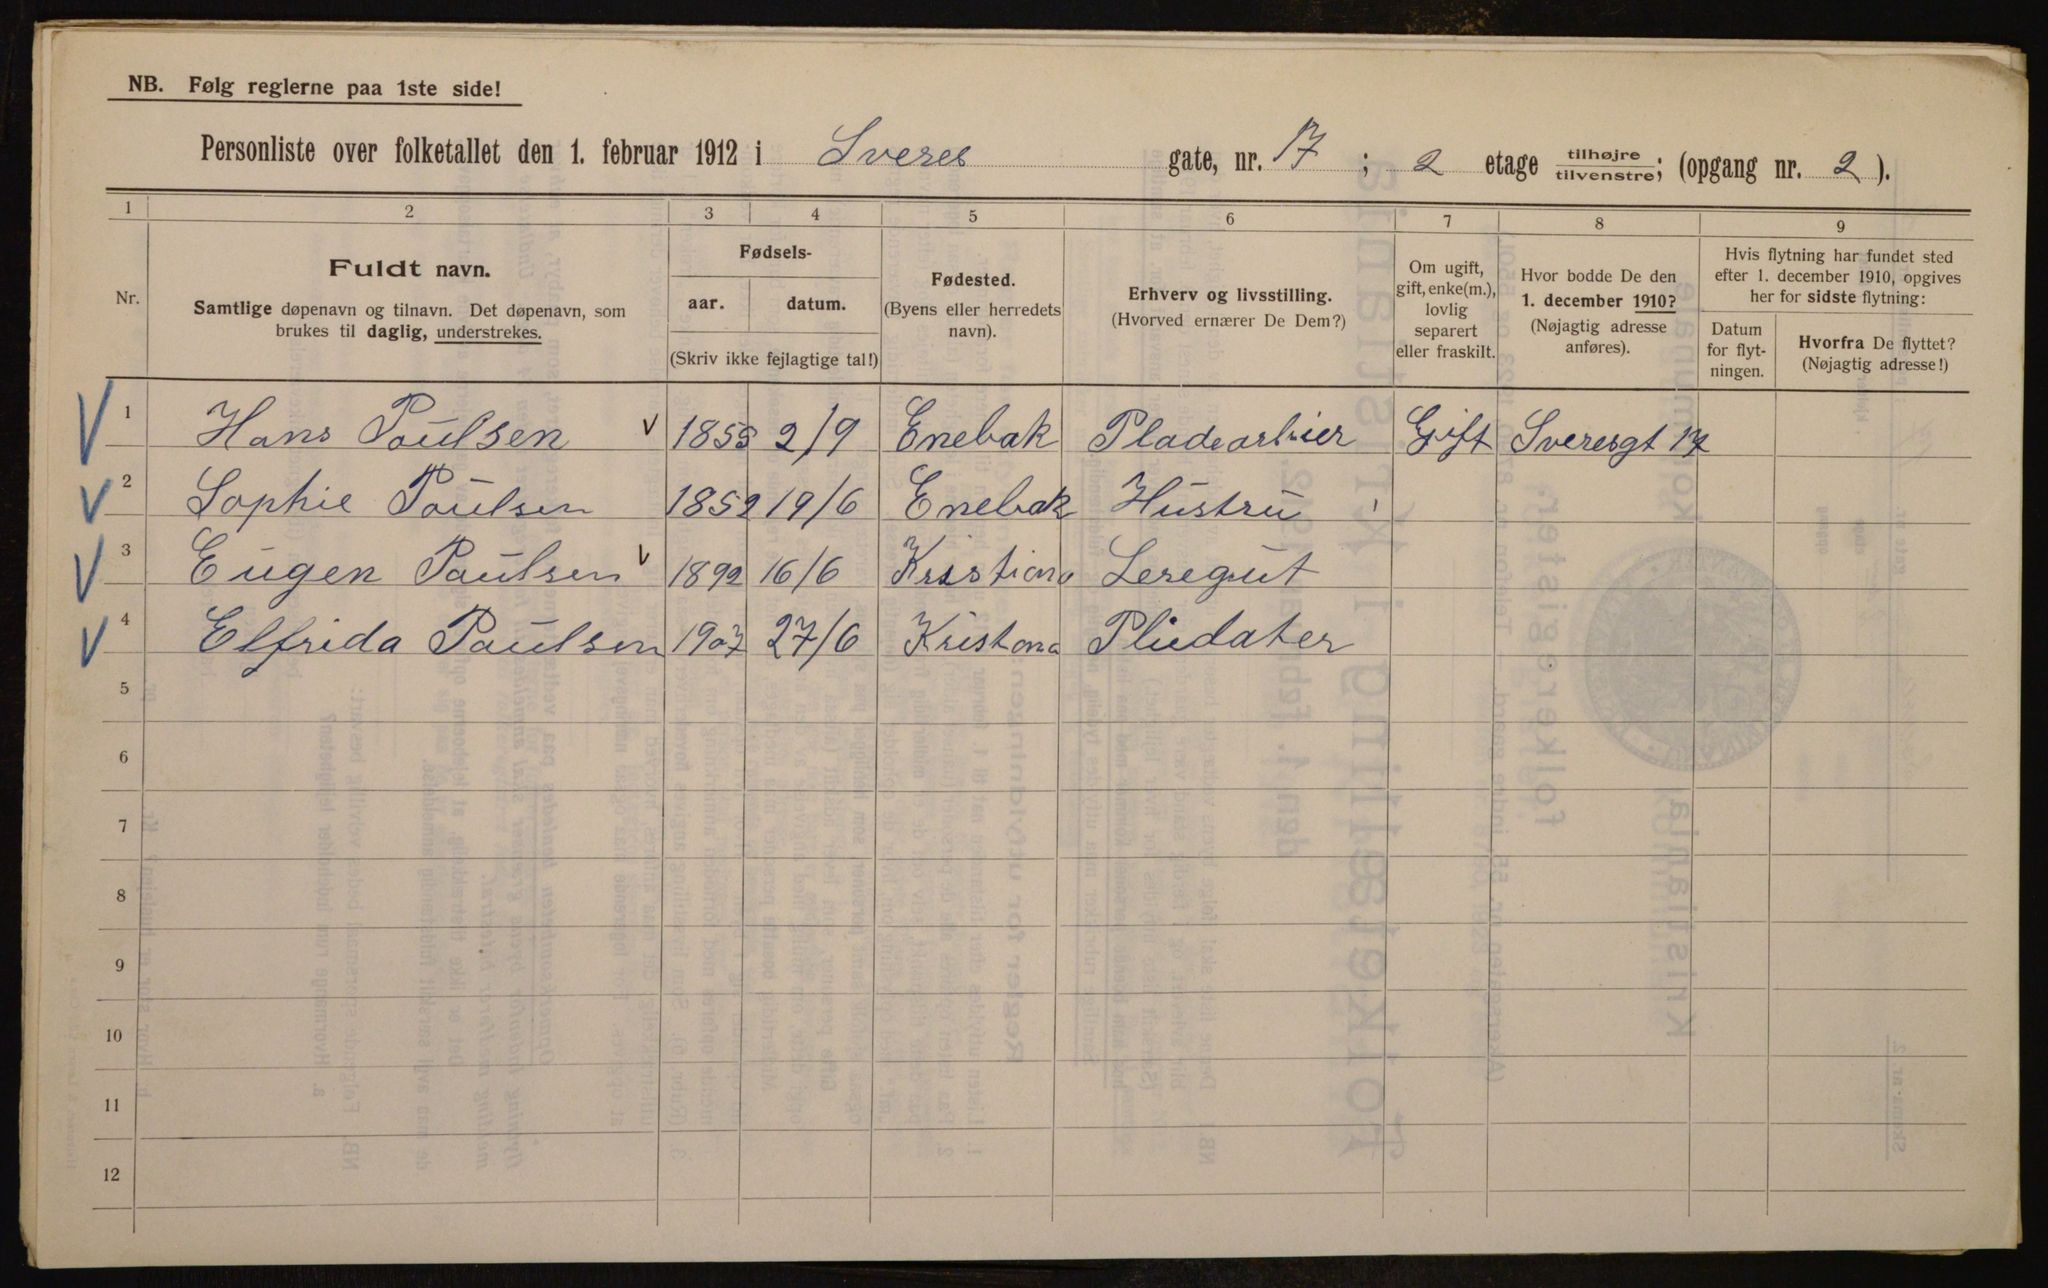 NB. Følg reglerne paa 1ste side!
Personliste over folketallet den 1. februar 1912 i Sveres gate, nr. 17 ; 2 etage tilhøjre tilvenstre; (opgang nr. 2 ).
1 2 3 4 5 6 7 8 9
Nr.
Fuldt navn.
Samtlige døpenavn og tilnavn. Det døpenavn, som
brukes til daglig, understrekes.
Fødsels-
aar. datum.
(Skriv ikke fejlagtige tal!)
Fødested.
(Byens eller herredets
navn).
Erhverv og livsstilling.
(Hvorved ernærer De Dem?)
Om ugift,
gift, enke(m.),
lovlig
separert
eller fraskilt.
Hvor bodde De den
1. december 1910?
(Nøjagtig adresse
anføres).
Hvis flytning har fundet sted
efter 1. december 1910, opgives
her for sidste flytning:
Datum
for flyt-
ningen.
Hvorfra De flyttet?
(Nøjagtig adresse!)
1 Hans Poulsen 2/9 Enebak Gift Sveresgt 17
2 Sophie Poulsen 1852 19/6 Enebak Hustru
3 Eugen Paulsen 1892 16/6 Kristiana Leregut
4 Elfrida Paulsen 1907 27/6 Kristona Pliedater
5
6
7
8
9
10
11
12